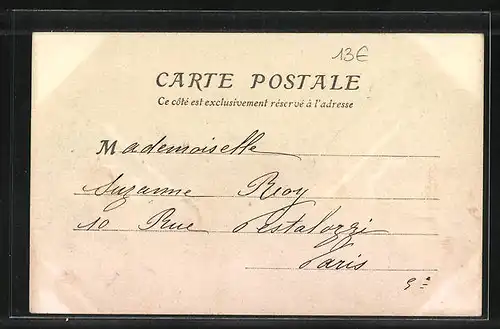 13€
CARTE POSTALE
Ce côté est exclusivement réservé à l'adresse
Mademoiselle
Suzanne Roy
10 Rue Pestalozzi
Paris
5e